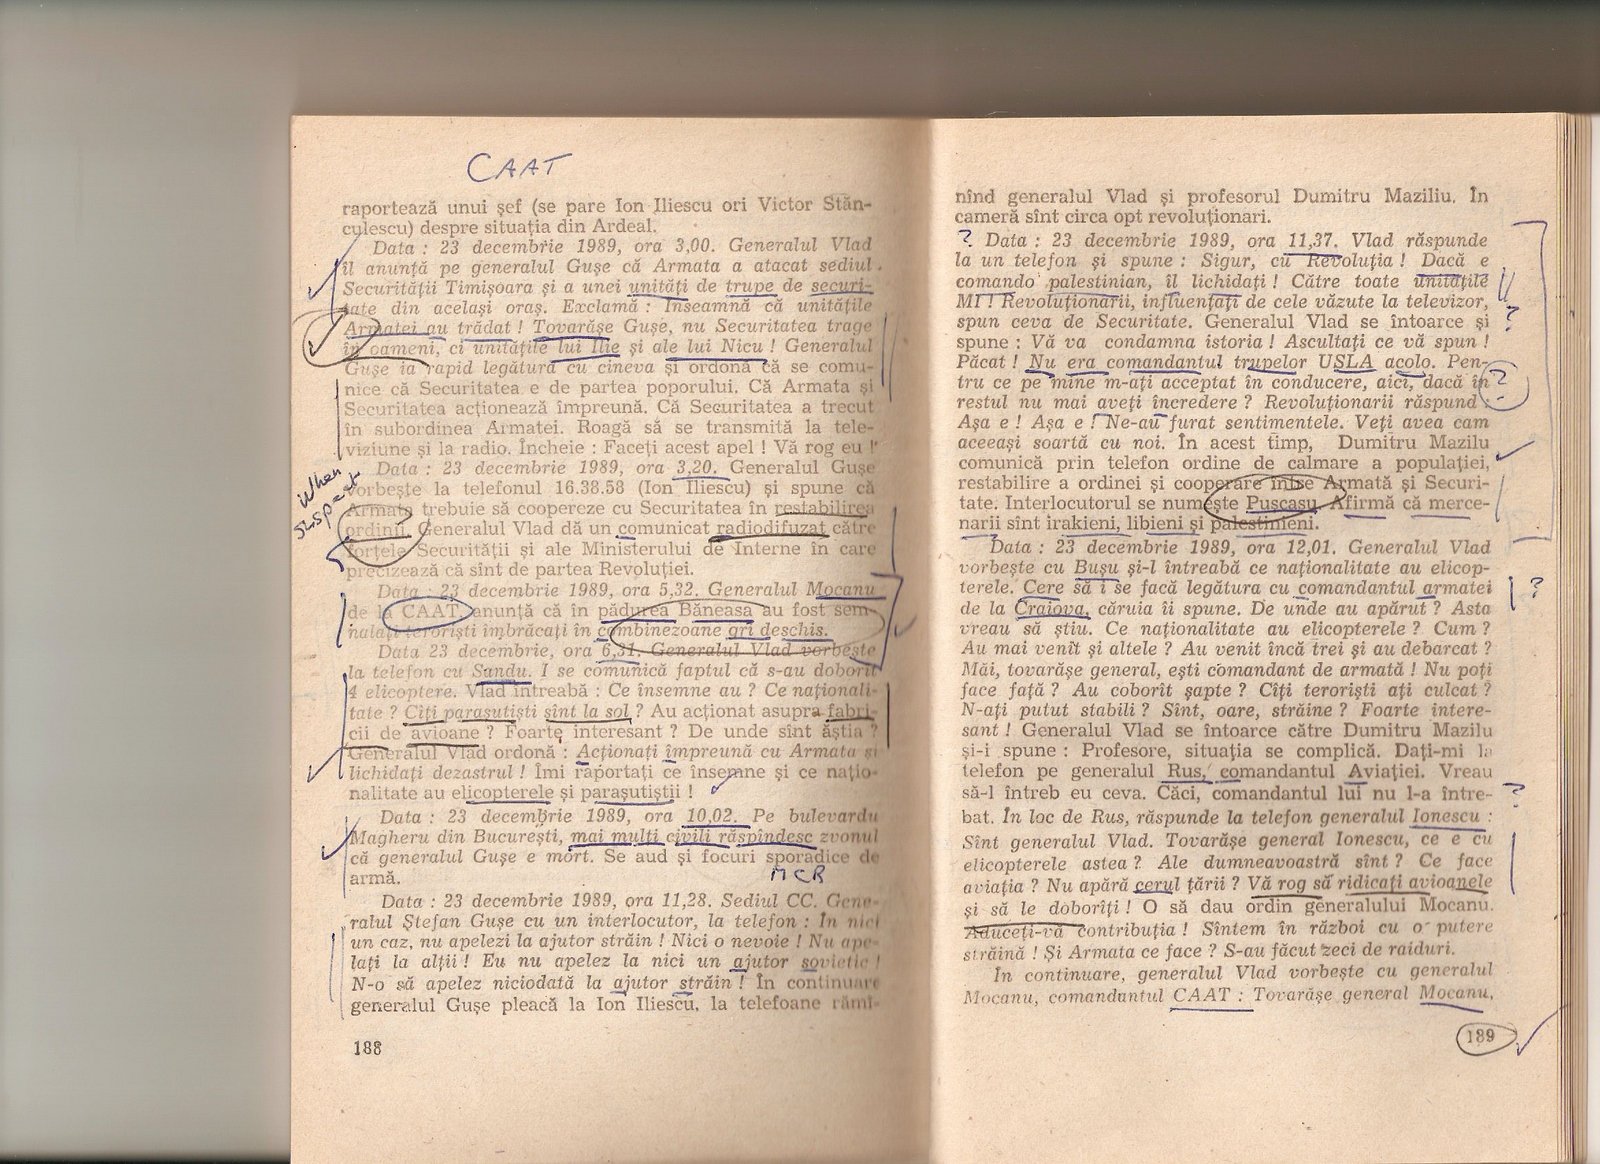 CAAT
raportează unui şef (se pare Ion Iliescu ori Victor Stăn-
culescu) despre situaţia din Ardeal.
Data : 23 decembrie 1989, ora 3,00. Generalul Vlad
îl anunţă pe generalul Guşe că Armata a atacat sediul
Securităţii Timişoara şi a unei unităţi de trupe de securi-
tate din acelaşi oraş. Exclamă : Înseamnă că unităţile
Armatei au trădat ! Tovarăşe Guşe, nu Securitatea trage
în oameni, ci unităţile lui Ilie şi ale lui Nicu ! Generalul
Guşe ia rapid legătura cu cineva şi ordonă că se comu-
nice că Securitatea e de partea poporului. Că Armata şi
Securitatea acţionează împreună. Că Securitatea a trecut
în subordinea Armatei. Roagă să se transmită la tele-
viziune şi la radio. Încheie : Faceţi acest apel ! Vă rog eu !
Data : 23 decembrie 1989, ora 3,20. Generalul Guşe
when
suspect
vorbeşte la telefonul 16.38.58 (Ion Iliescu) şi spune că
Armata trebuie să coopereze cu Securitatea în restabilirea
ordinii. Generalul Vlad dă un comunicat radiodifuzat către
forţele Securităţii şi ale Ministerului de Interne în care
precizează că sînt de partea Revoluţiei.
Data : 23 decembrie 1989, ora 5,32. Generalul Mocanu
de la CAAT, anunţă că în pădurea Băneasa au fost sem-
nalaţi terorişti îmbrăcaţi în combinezoane gri deschis.
Data 23 decembrie, ora 6,31. Generalul Vlad vorbeşte
la telefon cu Sandu. I se comunică faptul că s-au doborît
4 elicoptere. Vlad întreabă : Ce însemne au ? Ce naţionali-
tate ? Cîţi paraşutişti sînt la sol ? Au acţionat asupra fabri-
cii de avioane ? Foarte interesant ? De unde sînt ăştia ?
Generalul Vlad ordonă : Acţionaţi împreună cu Armata şi
lichidaţi dezastrul ! Îmi raportaţi ce însemne şi ce naţio-
nalitate au elicopterele şi paraşutiştii !
Data : 23 decembrie 1989, ora 10,02. Pe bulevardu
Magheru din Bucureşti, mai mulţi civili răspîndesc zvonul
că generalul Guşe e mort. Se aud şi focuri sporadice de
armă.
MCR
Data : 23 decembrie 1989, ora 11,28. Sediul CC. Gene-
ralul Ştefan Guşe cu un interlocutor, la telefon : În nici
un caz, nu apelezi la ajutor străin ! Nici o nevoie ! Nu ape-
laţi la alţii ! Eu nu apelez la nici un ajutor sovietic !
N-o să apelez niciodată la ajutor străin ! În continuare
generalul Guşe pleacă la Ion Iliescu, la telefoane rămî-
188
nînd generalul Vlad şi profesorul Dumitru Maziliu. În
cameră sînt circa opt revoluţionari.
? Data : 23 decembrie 1989, ora 11,37. Vlad răspunde
la un telefon şi spune : Sigur, cu Revoluţia ! Dacă e
comando palestinian, îl lichidaţi ! Către toate unităţile
MI ! Revoluţionarii, influenţaţi de cele văzute la televizor,
spun ceva de Securitate. Generalul Vlad se întoarce şi ?
spune : Vă va condamna istoria ! Ascultaţi ce vă spun !
Păcat ! Nu era comandantul trupelor USLA acolo. Pen-
tru ce pe mine m-aţi acceptat în conducere, aici, dacă în ?
restul nu mai aveţi încredere ? Revoluţionarii răspund :
Aşa e ! Aşa e ! Ne-au furat sentimentele. Veţi avea cam
aceeaşi soartă cu noi. În acest timp, Dumitru Mazilu
comunică prin telefon ordine de calmare a populaţiei,
restabilire a ordinei şi cooperare între Armată şi Securi-
tate. Interlocutorul se numeşte Puscaşu. Afirmă că merce-
narii sînt irakieni, libieni şi palestinieni.
Data : 23 decembrie 1989, ora 12,01. Generalul Vlad
vorbeşte cu Buşu şi-l întreabă ce naţionalitate au elicop-
terele. Cere să i se facă legătura cu comandantul armatei ?
de la Craiova, căruia îi spune. De unde au apărut ? Asta
vreau să ştiu. Ce naţionalitate au elicopterele ? Cum ?
Au mai venit şi altele ? Au venit încă trei şi au debarcat ?
Măi, tovarăşe general, eşti comandant de armată ! Nu poţi
face faţă ? Au coborît şapte ? Cîţi terorişti aţi culcat ?
N-aţi putut stabili ? Sînt, oare, străine ? Foarte intere-
sant ! Generalul Vlad se întoarce către Dumitru Mazilu
şi-i spune : Profesore, situaţia se complică. Daţi-mi la
telefon pe generalul Rus, comandantul Aviaţiei. Vreau
să-l întreb eu ceva. Căci, comandantul lui nu l-a între- ?
bat. În loc de Rus, răspunde la telefon generalul Ionescu :
Sînt generalul Vlad. Tovarăşe general Ionescu, ce e cu
elicopterele astea ? Ale dumneavoastră sînt ? Ce face
aviaţia ? Nu apără cerul ţării ? Vă rog să ridicaţi avioanele
şi să le doborîţi ! O să dau ordin generalului Mocanu.
Aduceţi-vă contribuţia ! Sîntem în război cu o putere
străină ! Şi Armata ce face ? S-au făcut zeci de raiduri.
In continuare, generalul Vlad vorbeşte cu generalul
Mocanu, comandantul CAAT : Tovarăşe general Mocanu,
189